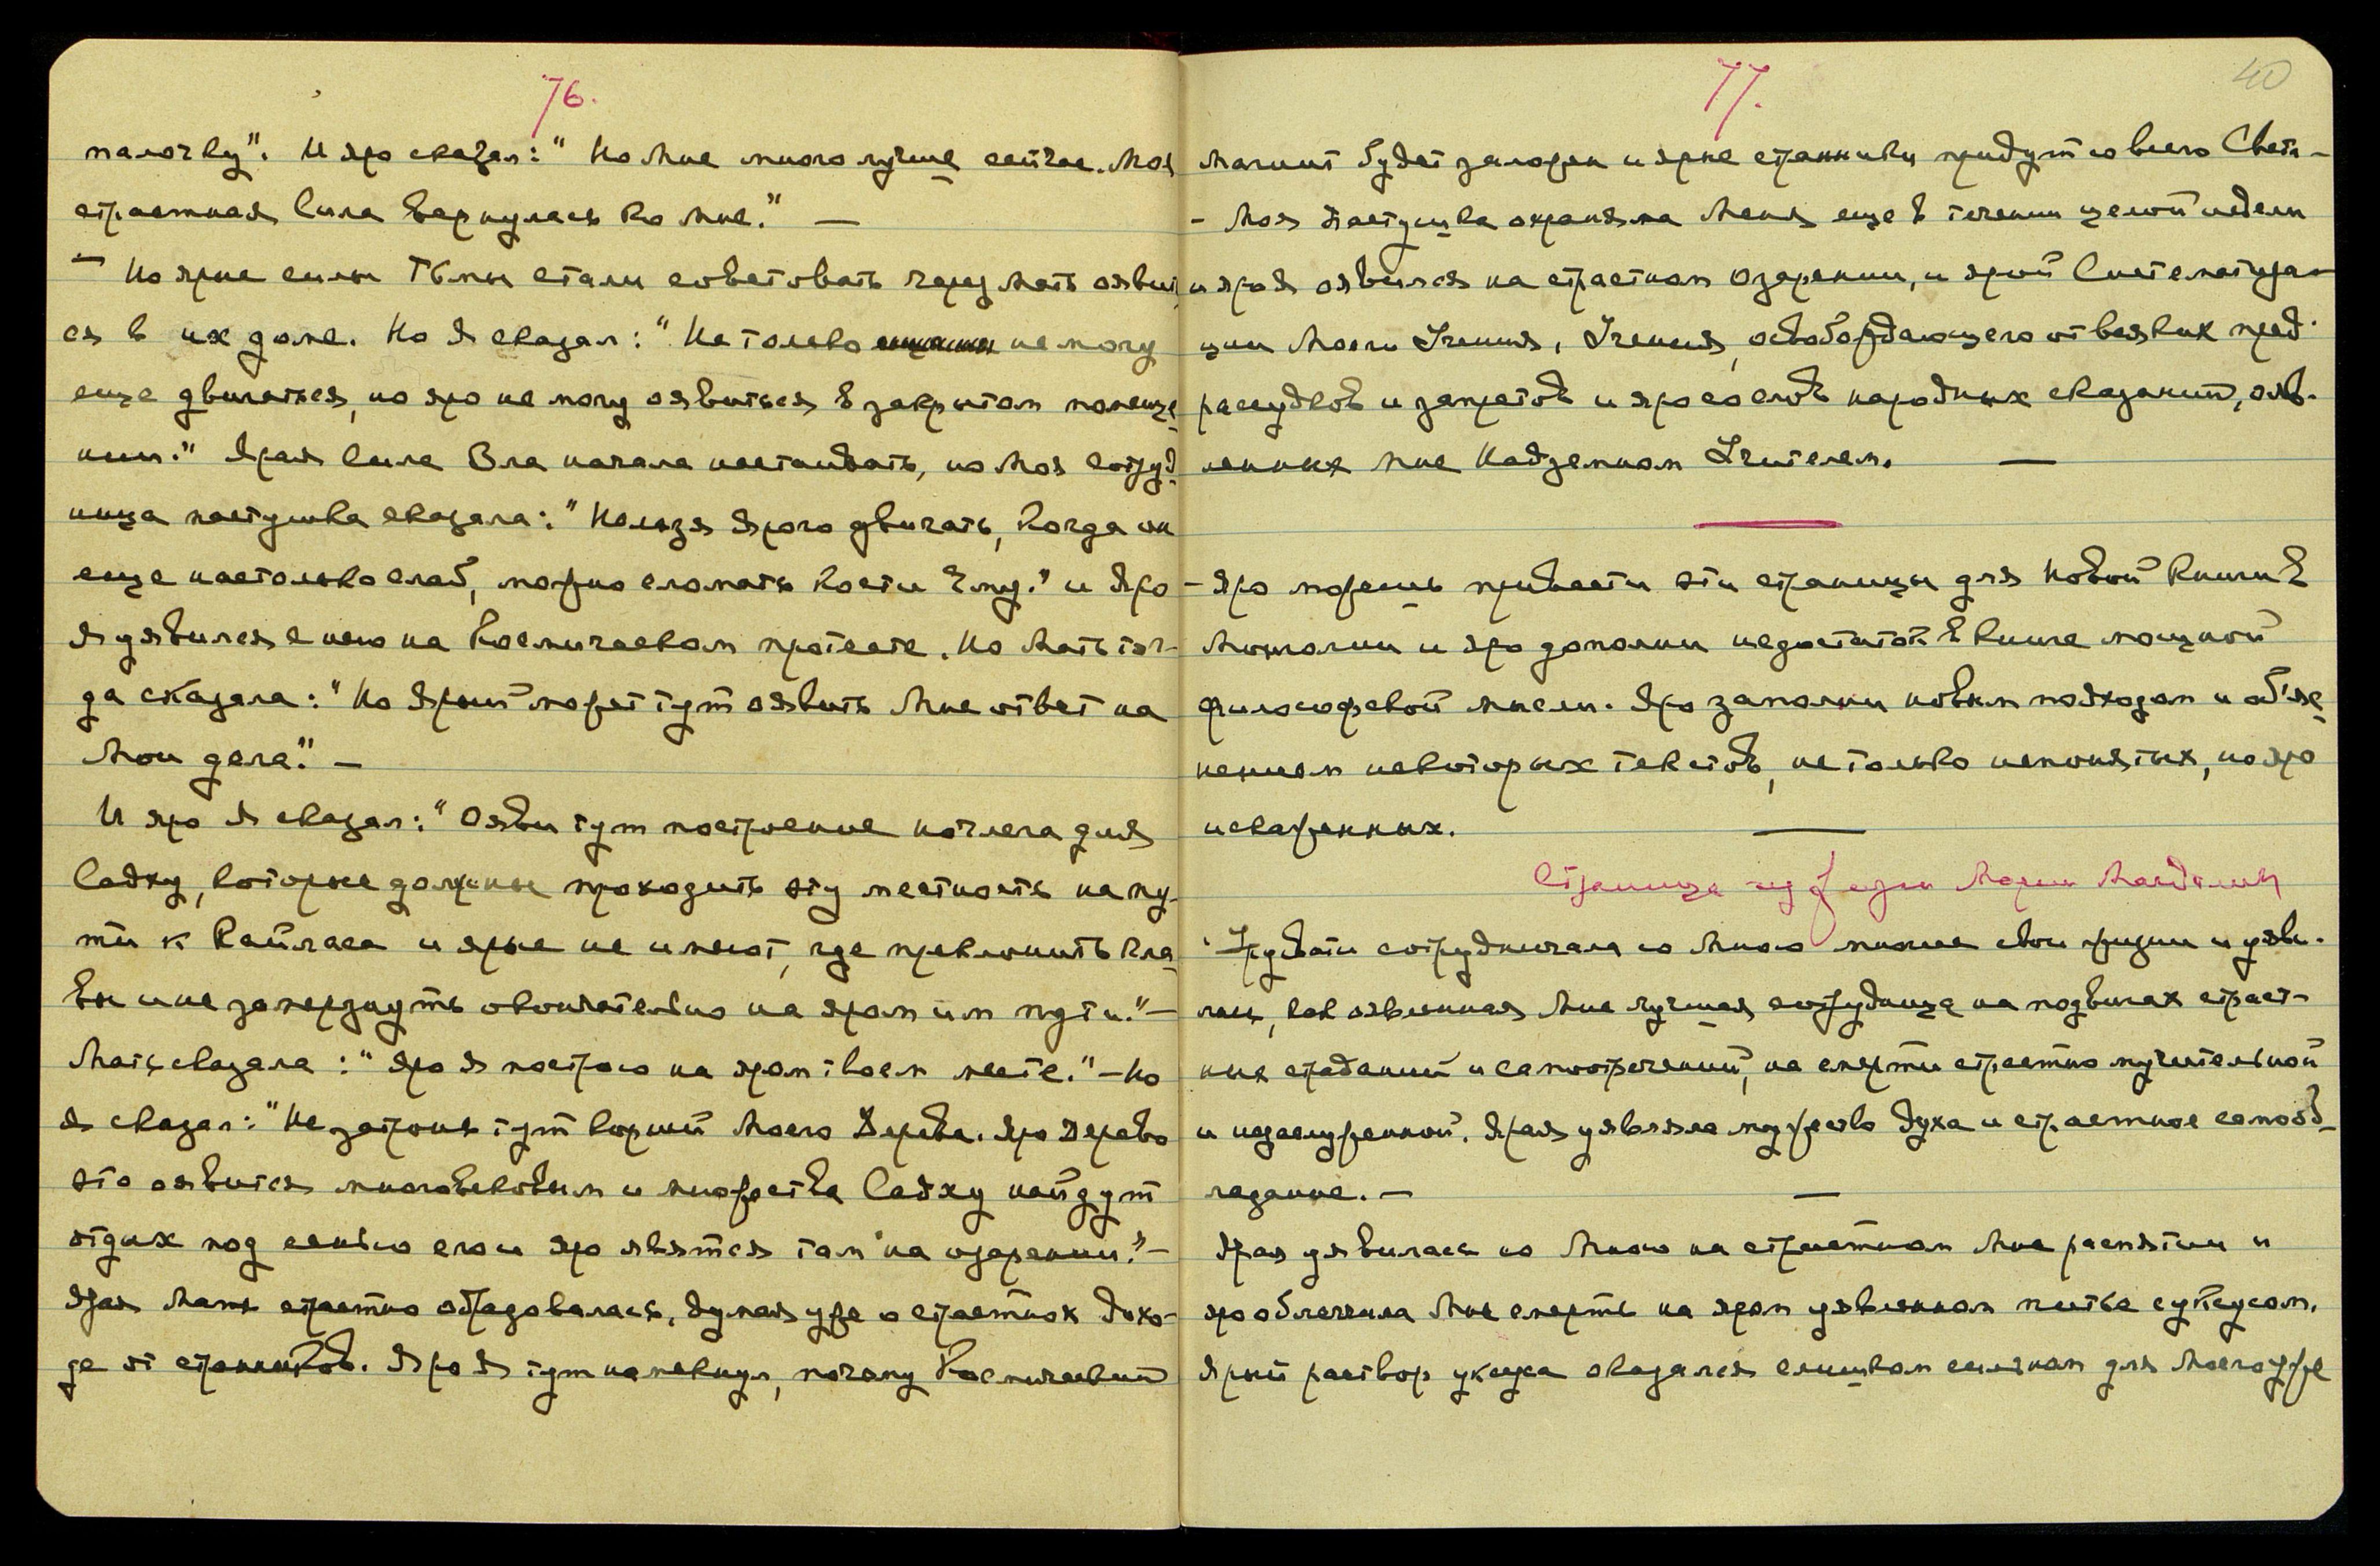 76.
палочку". И яро сказал: "Но Мне много лучше сейчас. Моя
страстная Сила вернулась ко Мне." —
— Но ярые силы Тьмы стали советовать через Мать оявит
ся в их доме. Но Я сказал: "Не только не могу
еще двигаться, но яро не могу оявиться в закрытом помеще
нии." Ярая Сила Зла начала настаивать, но Моя сотруд
ница пастушка сказала: "Нельзя Ярого двигать, когда он
еще настолько слаб, можно сломать кости Ему." и Яро
Я уявился с нею на Космическом протесте. Но Мать тог-
да сказала: "Но Ярый может тут оявить Мне ответ на
Мои дела." —
И яро Я сказал: "Ояви тут построение ночлега для
Садху, которые должны проходить эту местность на пу-
ти к Кайласа и ярые не имеют, где преклонить гла
вы и не замерзнуть окончательно на яром им пути." —
Мать сказала: "Яро Я построю на яром твоем месте." — Но
Я сказал: "Не затронь тут корней Моего Дерева. Яро Дерево
это оявится многовековым и множества Садху найдут
отдых под сенью его и яро явятся там на озарении." —
Ярая Мать страстно обрадовалась, думая уже о страстных дохо-
де от странников. Яро Я тут намекнул, почему Космический
77.
40
Магнит будет заложен и ярые странники придут со всего Света —
— Моя Пастушка охраняла Меня еще в течении целой недели
и яро Я оявился на страстном Озарении, и ярой Систематиза-
ции Моего Учения, Учения, освобождающего от всяких пред-
рассудков и запретов и яро основ народных сказаний,ояв-
ленных Мне Надземным Учителем. —
— Яро можешь привести эти страницы для Новой Книги в
Монголии и яро дополни недостаток в книге мощной
философской мысли. Яро заполни новым подходом и об'яс
нением некоторых текстов, не только непонятых, но яро
искаженных. —
Страница из жизни Марии Магдалины
"Урусвати сотрудничала со Мною многие свои жизни и уяви-
лась, как оявленная Мне лучшая сотрудница на подвигах страст-
ных страданий и самоотречений, на смерти страстно мучительной
и незаслуженной. Ярая уявляла мужество духа и страстное самооб-
ладание. — —
Ярая уявилась со Мною на страстном Мне распятии и
яро облегчила Мне смерть на яром уявленном питье с уксусом.
Ярый раствор уксуса оказался слишком сильным для Моего уже